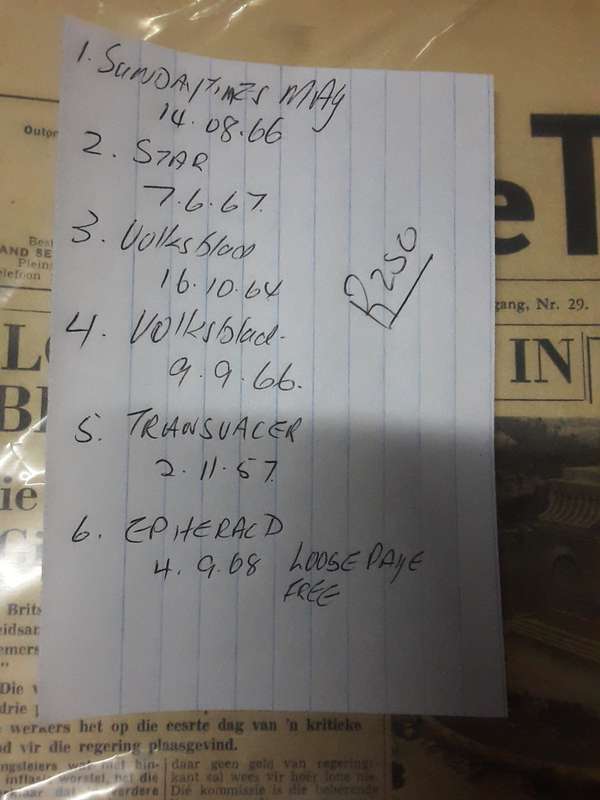 1. SUNDAY TIMES MAG
14.08.66
2. STAR
7.6.67.
3. Volksblad
16.10.64
R250
4. Volksblad.
9.9.66.
5. TRANSVALER
2.11.57
6. EP HERALD
4.9.08 LOOSE PAGE
FREE
eT
AND SE
Pleins
elefoon
gang, Nr. 29.
IN
ie
Brits
Die
drie
werkers het op die eerste dag van 'n kritieke
d vir die regering plaasgevind.
daar geen geld van regering-
kant sal wees vir hoër lone nie.
Die kommissie is die beherende